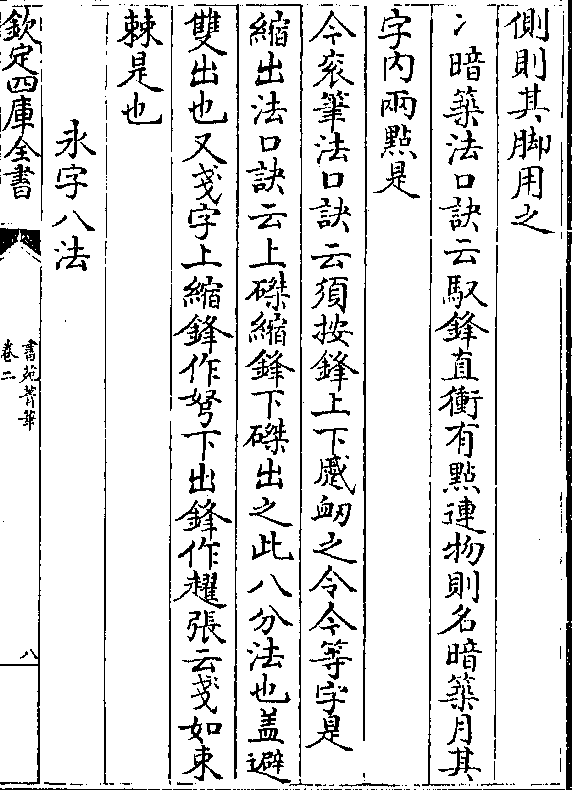 側則其脚用之
冫暗築法口訣云馭鋒直衝有點連物則名暗築月其
字内兩點是
今衮筆法口訣云須按鋒上下蹙衂之令今等字是
縮出法口訣云上磔縮鋒下磔出之此八分法也盖避
雙出也又戔字上縮鋒作弩下出鋒作趯張云戔如束
棘是也
永字八法
欽定四庫全書
書苑菁華
卷二
八